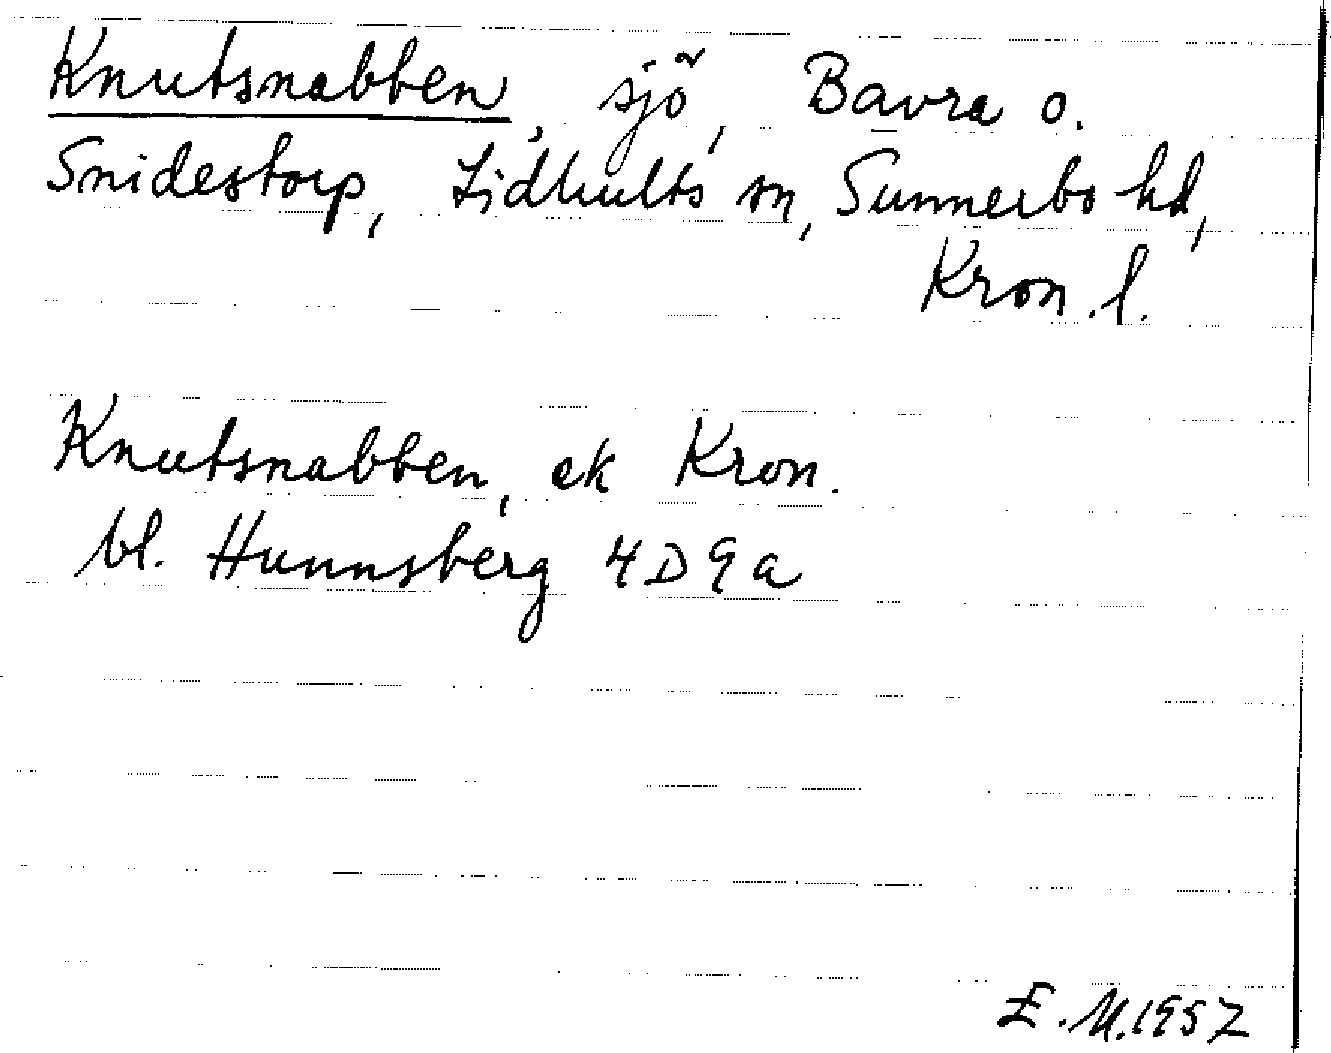 Knutsnabben, sjö, Bavra o.
Snidestorp, Lidhults sn, Sunnerbo hd,
Kron. l.
Knutsnabben, ek Kron.
bl. Hunnsberg 4D9a
E.M.1957